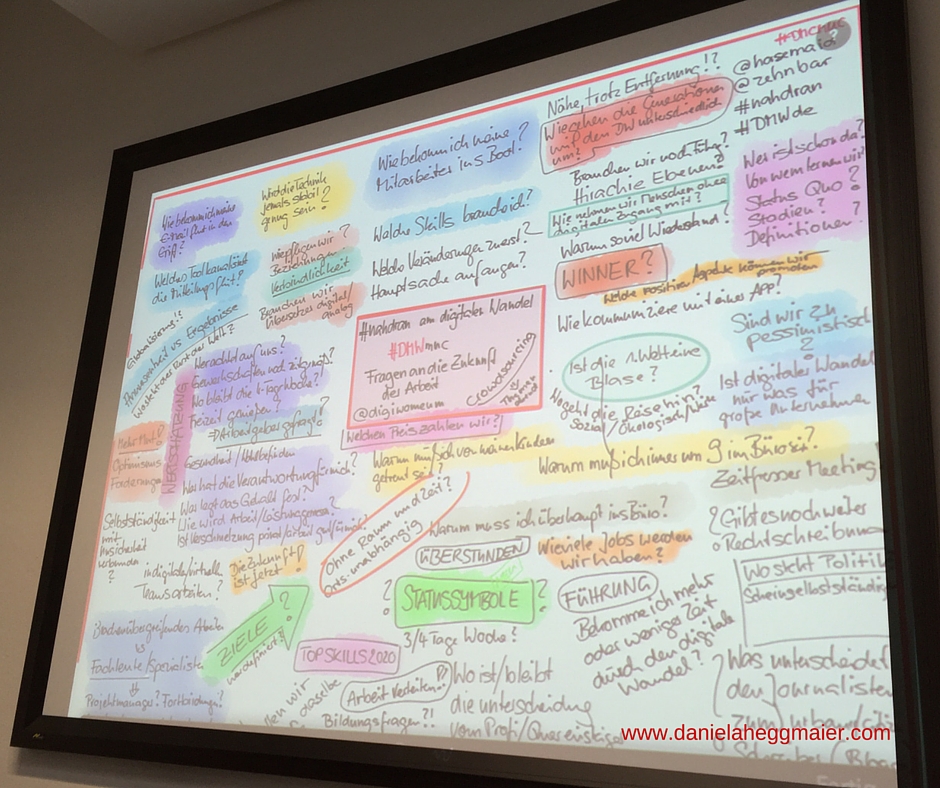 #DMCmuc
@hasemaia
@zehnbar
#nahdran
#DMWde
Nähe, trotz Entfernung!?
Wie gehen die Generationen
mit dem DW unterschiedlich
um?
Wie bekomm ich meine
Mitarbeiter ins Boot?
Wird die Technik
jemals stabil
genug sein?
Wie bekomm ich meine
E-Mail Flut in den
Griff?
Brauchen wir noch Führ.?
Hirachie Ebenen?
Wer ist schon da?
Von wem lernen wir?
Status Quo?
Stadien?
Definitionen?
Wie nehmen wir Menschen ohne
digitalen Zugang mit?
Welche Skills brauch ich?
Wie pflegen wir?
Beziehungen
Verbindlichkeit
Welches Tool kanalisiert
die Mitteilungsflut?
Warum soviel Widerstand?
Welche Veränderungen zuerst?
Hauptsache anfangen?
WINNER?
Welche Positiven Aspekte können wir
promoten
Brauchen wir
Übersetzer digital/
analog
Globalisierung!?
Anwesenheit vs Ergebnisse
Wie kommuniziere mit einer APP?
Sind wir zu
pessimistisch
?
#nahdran am digitalen Wandel
#DMWmuc
Fragen an die Zukunft
der Arbeit
@digiwomeum
Crowdsourcing
WERTSCHÄTZUNG
Wer achtet auf uns?
Gewerkschaften noch zeitgemäß?
Wo bleibt die
Freizeit genießen?
Arbeitgeber gefragt?
Ist die 1. Welt eine
Blase?
Ist digitaler Wandel
nur was für
große Unternehmen
Wo geht die Reise hin?
Sozial / Ökologisch /
Welchen Preis zahlen wir?
Mehr Mut!
Optimismus
Förderungen
Gesundheit / Wohlbefinden
Wer hat die Verantwortung für mich?
Wer legt das Gehalt fest?
Wie wird Arbeit/Leistung gemessen?
Warum muß ich von meinen Kindern
getrennt sein?
Warum muß ich immer um 9 im Büro sein?
Zeitfresser Meeting
Ohne Raum und Zeit?
Orts-unabhängig
Warum muss ich überhaupt ins Büro?
Selbstständigkeit
mit
Unsicherheit
verbunden
?
Die Zukunft
ist jetzt!
ÜBERSTUNDEN
Wieviele Jobs werden
wir haben?
? Gibt es noch weiter
Rechtschreibung
in digitale/virtuelle
Teams arbeiten?
ZIELE
?
neu definiert?
?
STATUSSYMBOLE
?
FÜHRUNG
Bekomme ich mehr
oder weniger Zeit
durch den digitalen
Wandel?
Wo steht Politik
Scheinselbstständig
Branchenübergreifendes Arbeiten
vs
Fachleute/Spezialisten
Projektmanager? Fortbildungen?
TOP SKILLS 2020
3/4 Tage Woche?
Arbeit verteilen?
Bildungsfragen?!
Wo ist/bleibt
die unterscheidung
vom Profi/Quereinsteiger
Was unterscheidet
den Journalisten
zum
Schreiber / Blog
www.danielaheggmaier.com